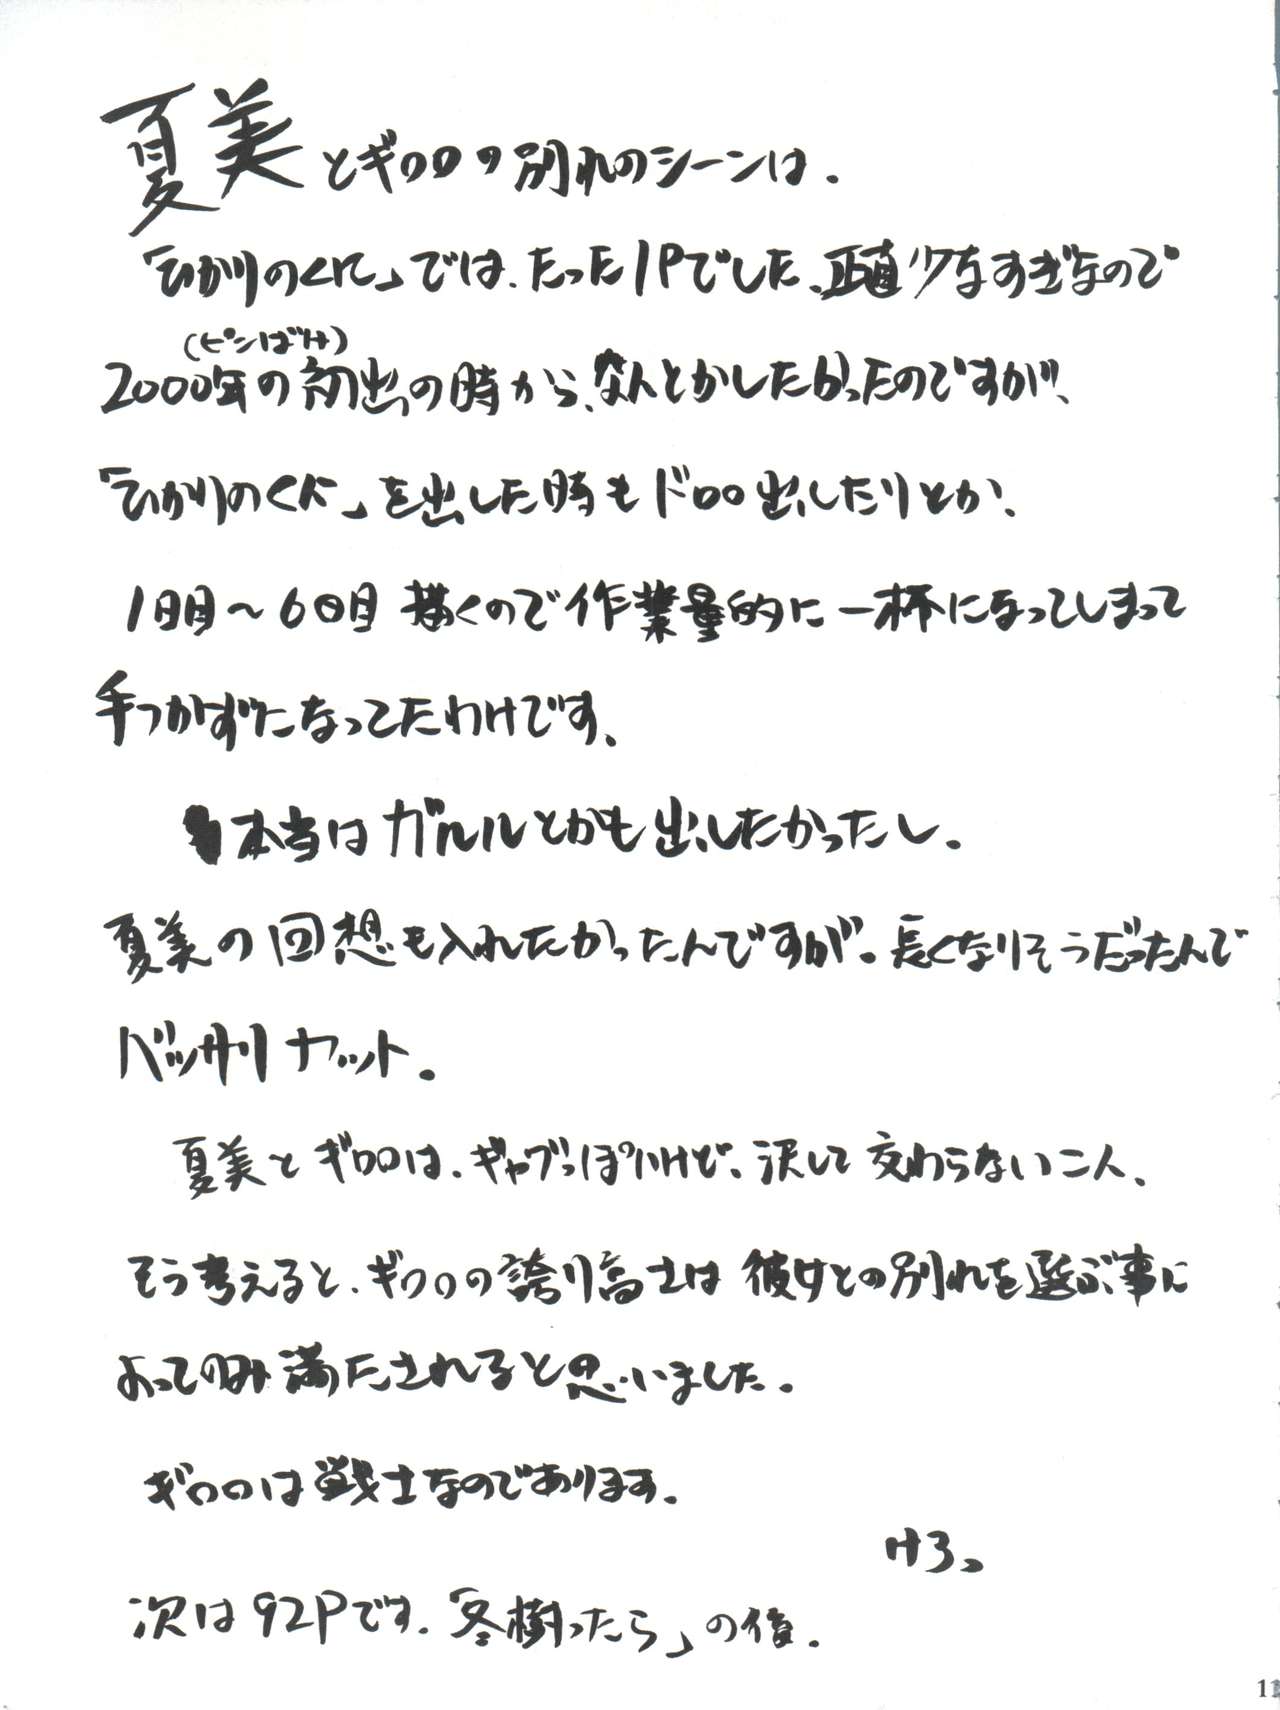 夏美とギロロの別れのシーンは.
「ひかりのくに」では、たった1Pでした、正直少なすぎなので
(ピンばけ)
2000年の初出の時から、なんとかしたかったのですが、
「ひかりのくに」を出した時もドロロ出したりとか、
1日目～6日目 描くので作業量的に一杯になってしまって
手つかずになってたわけです、
本当はガルルとかも出したかったし.
夏美の回想も入れたかったんですが. 長くなりそうだったんで
バッサリカット.
夏美とギロロは、ギャグっぽいけど、決して交わらない二人、
そう考えると、ギロロの誇り高さは 彼女との別れを選ぶ事に
よってのみ満たされると思いました.
ギロロは戦士なのであります.
けろっ
次は92Pです.「冬樹ったら」の後.
11